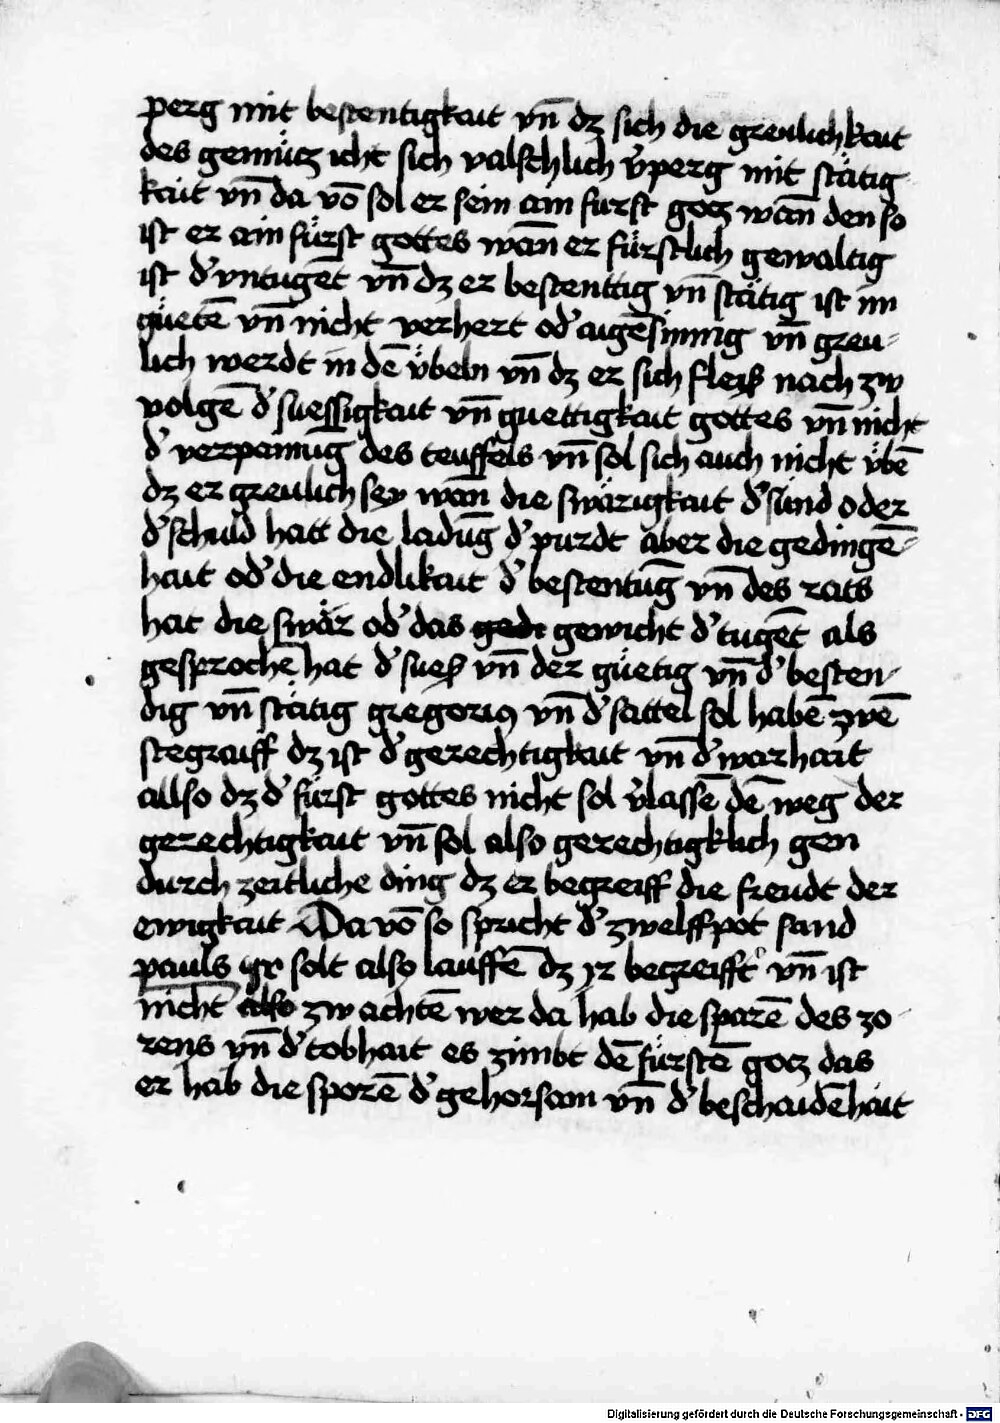 perg mit bestentigkait vn̄ dz sich die greulichkait
des gemütz icht sich valschlich v̾perg mit stätig
kait vn̄ da vō sol er sein ain furst gotz wān den so
ist er ain fürst gottes wān er fürstlich gewaltig
ist d̾ vntugēt vn̄ dz er bestenttig vn̄ stätig ist im
güetē vn̄ nicht verhert od̾ aigēsinnig vn̄ greu-
lich werdt in dē übeln vn̄ dz er sich fleiß nach zw
volgē d̾ suessigkait vn̄ guettigkait gottes vn̄ nicht
d̾ verpannūg des teuffels vn̄ sol sich auch nicht übē
dz er greulich sey wān die swärigkait d̾ sünd oder
d̾ schuld hatt die ladūg d̾ purdt aber die gedingē-
hait od̾ die endlikait d̾ bestentūg vn̄ des rats
hat die swär od̾ das gedi gewicht d̾ tugēt als
gesprochē hat d̾ sueß vn̄ der güetig vn̄ d̾ besten-
dig vn̄ stätig gregoriꝰ vn̄ d̾ sattel sol habē zwē
stegraiff dz ist d̾ gerechtigkait vn̄ d̾ warhait
allso dz d̾ fürst gottes nicht sol v̾lassē dē weg der
gerechtigkait vn̄ sol also gerechtigklich gen
durch zeitliche ding dz er begreiff die freudt der
ewigkait Da vō so spricht d̾ zwelffpot sand
pauls yr solt also lauffē dz ir begreifft vn̄ ist
nicht also zw achtē wer da hab die sparē des zo-
rens vn̄ d̾ tobhait es zimbt dē fürstē gotz das
er hab die sporē d̾ gehorsam vn̄ d̾ beschaidēhait
Digitalisierung gefördert durch die Deutsche Forschungsgemeinschaft - DFG